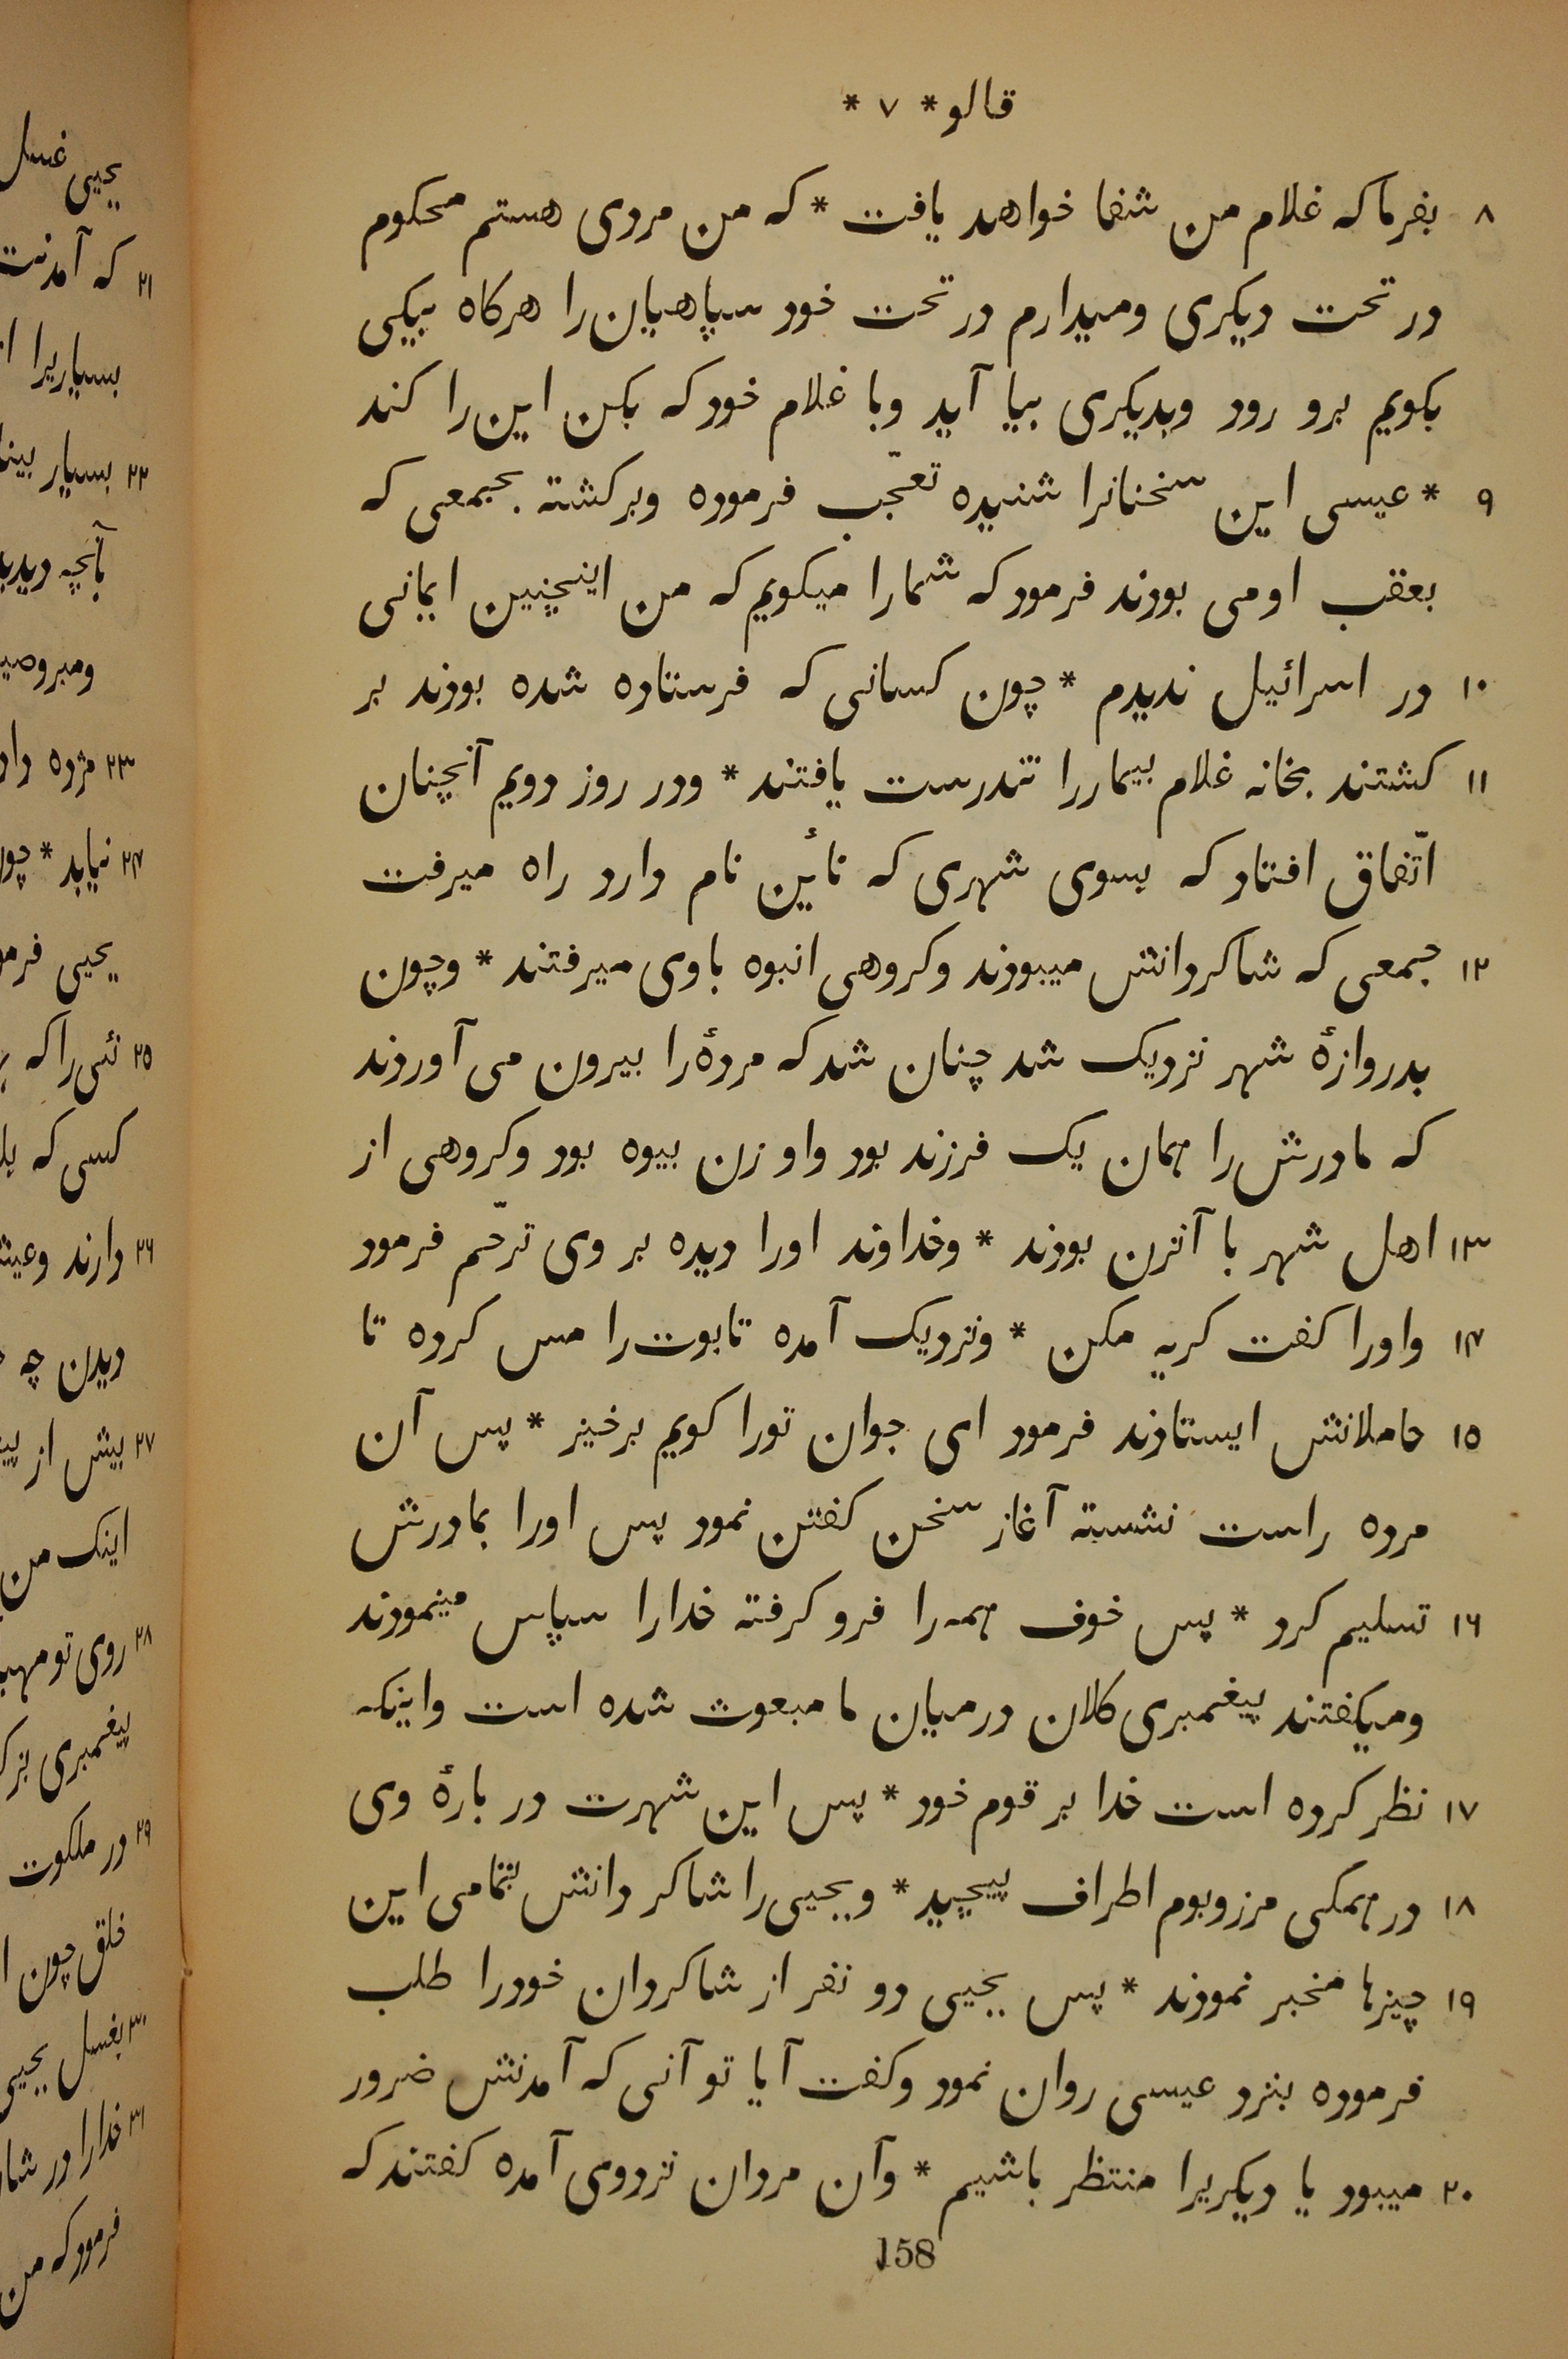 قالو * ٧ *
٨ بفرما که غلام من شفا خواهد یافت * که من مردی هستم محکوم
در تحت دیکری ومیدارم در تحت خود سپاهیان را هرکاه بیکی
بکویم برو رود وبدیکری بیا آید وبا غلام خود که بکن این را کند
٩ * عیسی این سخنانرا شنیده تعجّب فرموده وبرکشته بجمعی که
بعقب او می بودند فرمود که شما را میکویم که من اینچنین ایمانی
١٠ در اسرائیل ندیدم * چون کسانی که فرستاده شده بودند بر
١١ کشتند بخانه غلام بیمار را تندرست یافتند * ودر روز دویم آنچنان
اتّفاق افتاد که بسوی شهری که نأین نام دارد راه میرفت
١٢ جمعی که شاکردانش میبودند وکروهی انبوه با وی میرفتند * وچون
بدروازهٔ شهر نزدیک شد چنان شد که مردهٔ را بیرون می آوردند
که مادرش را همان یک فرزند بود واو زن بیوه بود وکروهی از
١٣ اهل شهر با آنزن بودند * وخداوند اورا دیده بر وی ترحّم فرمود
١۴ واورا کفت کریه مکن * ونزدیک آمده تابوت را مس کرده تا
١٥ حاملانش ایستادند فرمود ای جوان تورا کویم برخیز * پس آن
مرده راست نشسته آغاز سخن کفتن نمود پس اورا بمادرش
١٦ تسلیم کرد * پس خوف همه را فرو کرفته خدارا سپاس مینمودند
ومیکفتند پیغمبری کلان در میان ما مبعوث شده است واینکه
١٧ نظر کرده است خدا بر قوم خود * پس این شهرت در بارهٔ وی
١٨ در همکی مرزوبوم اطراف پیچید * ویحیی را شاکردانش بتمامی این
١٩ چیزها مخبر نمودند * پس یحیی دو نفر از شاکردان خودرا طلب
فرموده بنزد عیسی روان نمود وکفت آیا تو آنی که آمدنش ضرور
٢٠ میبود یا دیکریرا منتظر باشیم * وآن مردان نزد وی آمده کفتند که
158
یحیی غسل
٢١ که آمدنت
بسیاریرا
٢٢ بسیار
بآنچه
٢٣ مژده
٢۴ نیابد *
یحیی
٢٥ نئی را که
کسی که
٢٦ دارند
دیدن چه
٢٧ بیش از
اینک من
٢٨ روی تو
پیغمبری
٢٩ در ملکوت
خلق چون
٣٠ بغسل
٣١ خدارا در
فرمود که من